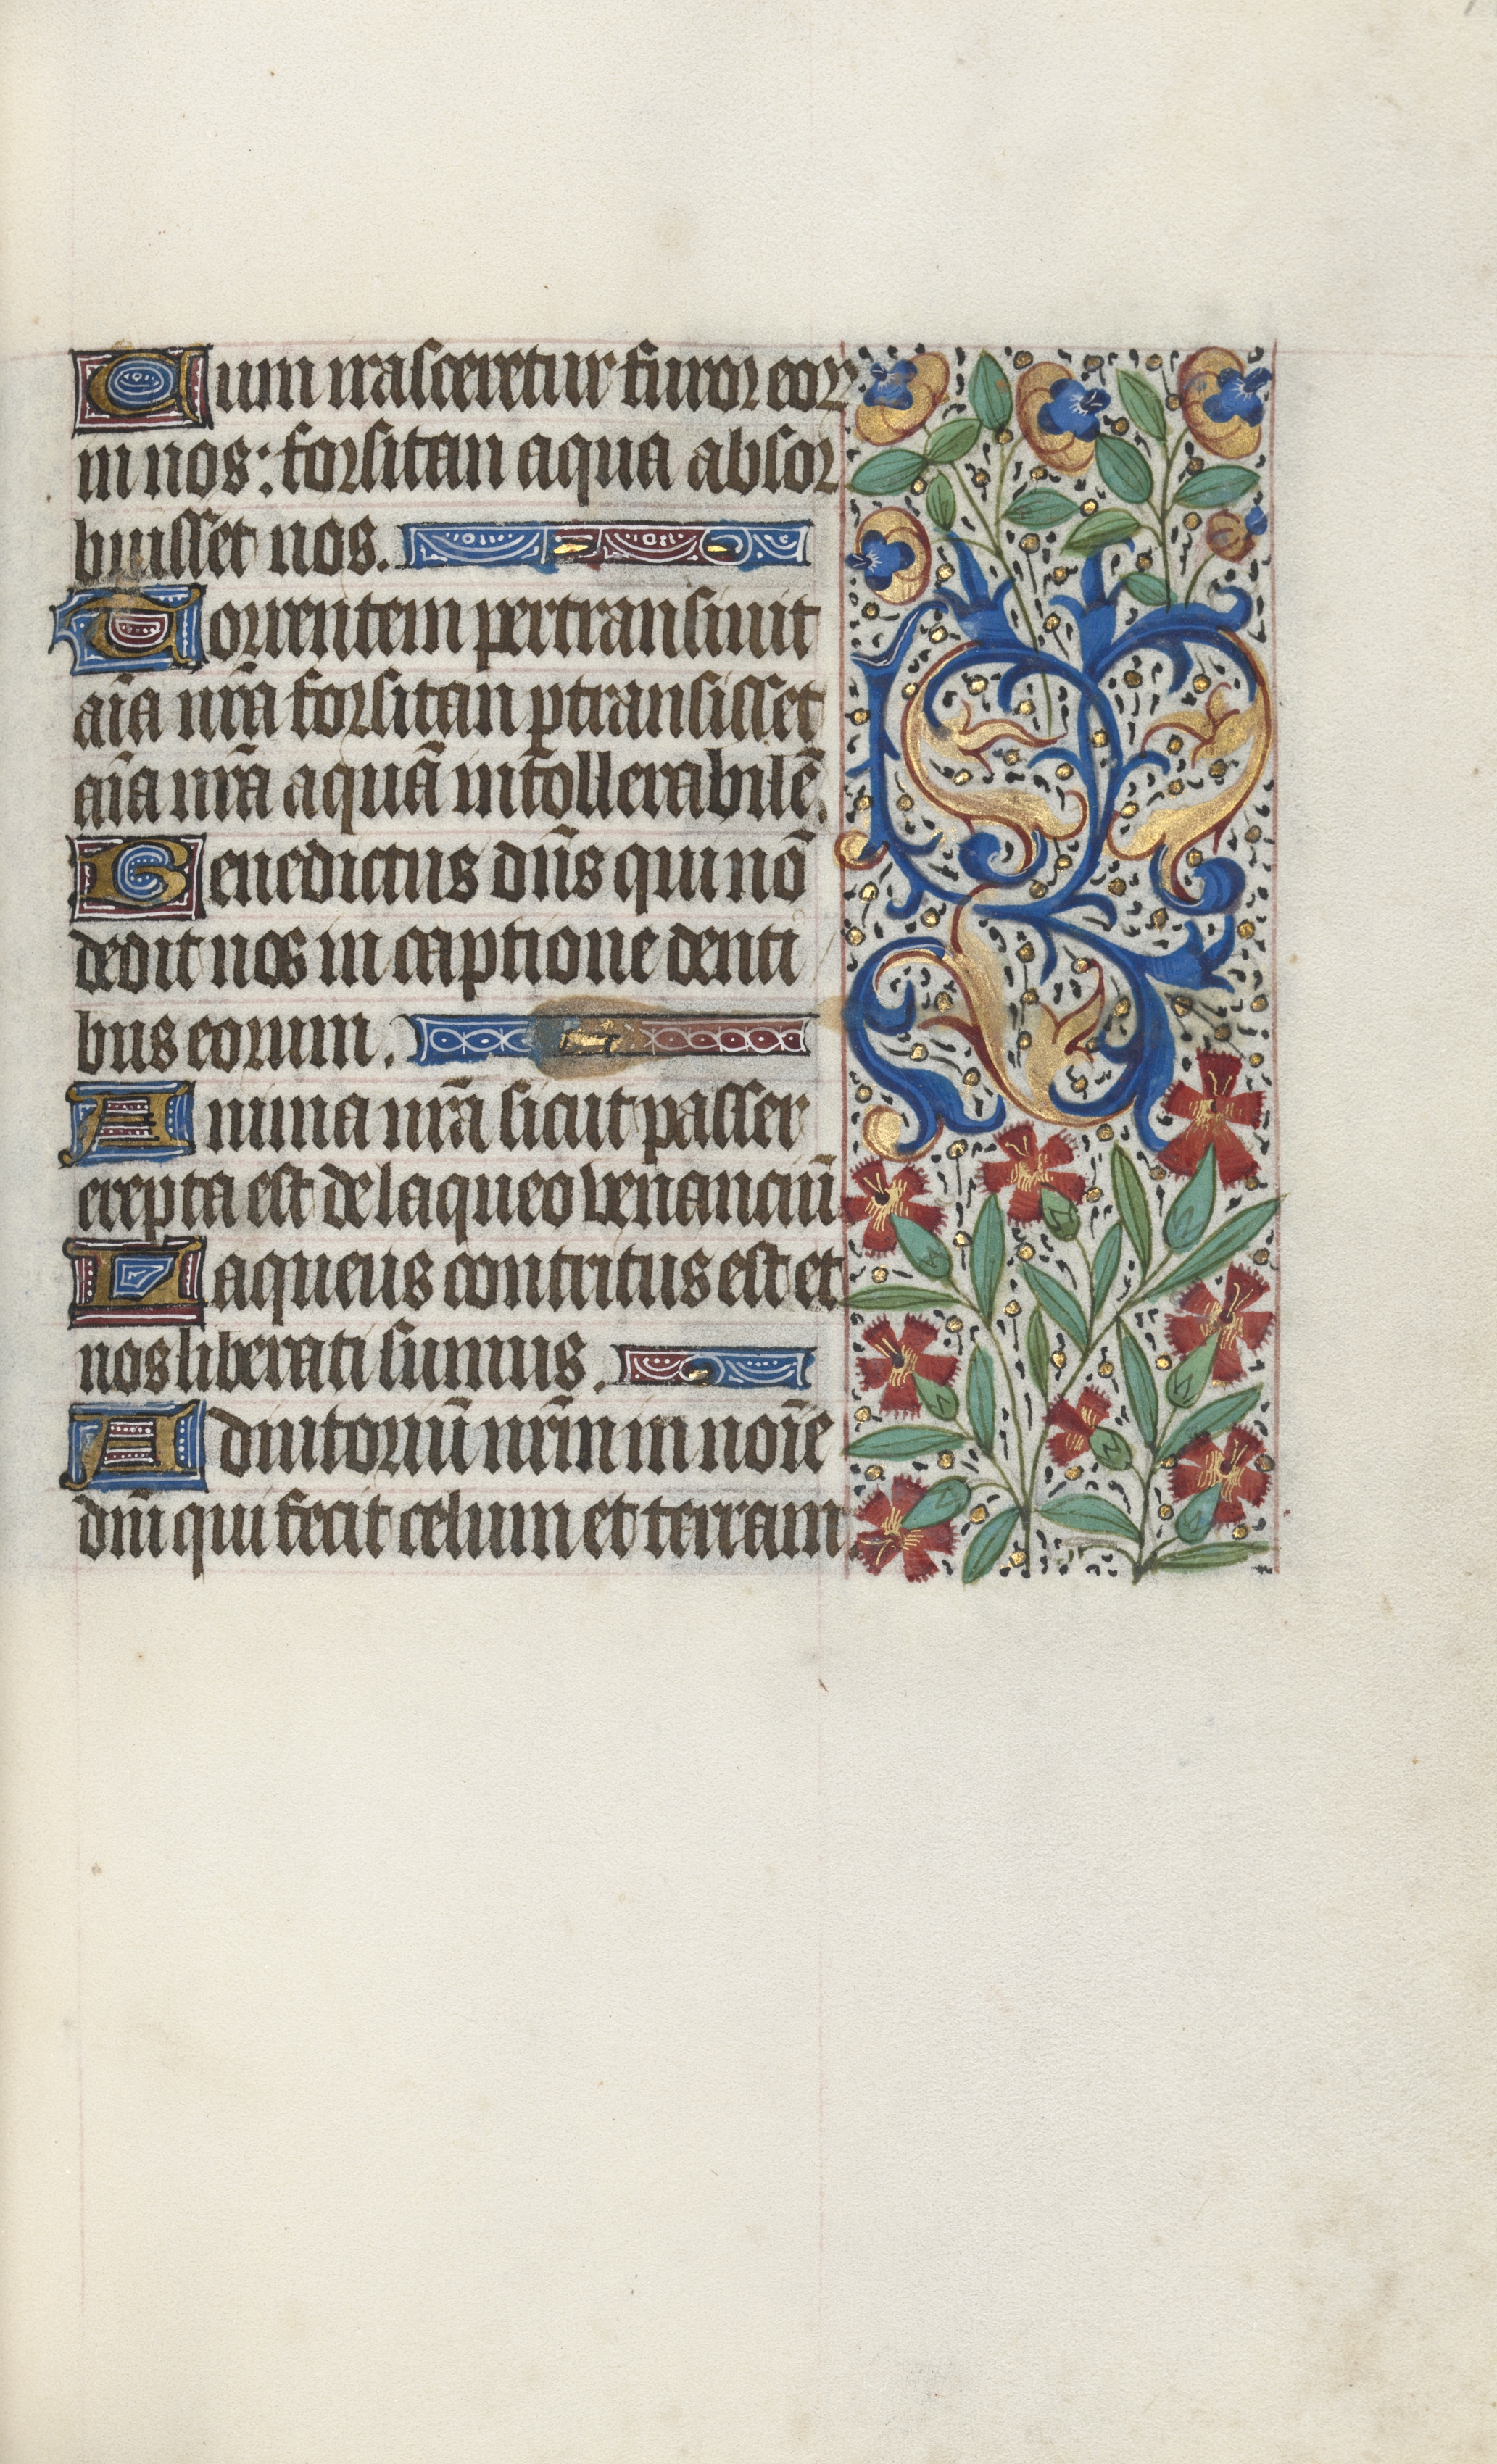 Cum irasceretur furor eor
in nos: forsitan aqua absor
buisset nos.
Torrentem pertransiuit
aīa nr̄a forsitan ꝑtransisset
aīa nr̄a aquā intollerabilē.
Benedictus dn̄s qui nō
dedit nos in captione denti
bus eorum.
Anima nr̄a sicut passer
erepta est de laqueo venanciū
Laqueus contritus est et
nos liberati sumus.
Adiutoriū nr̄m in noīe
dn̄i qui fecit celum et terram.